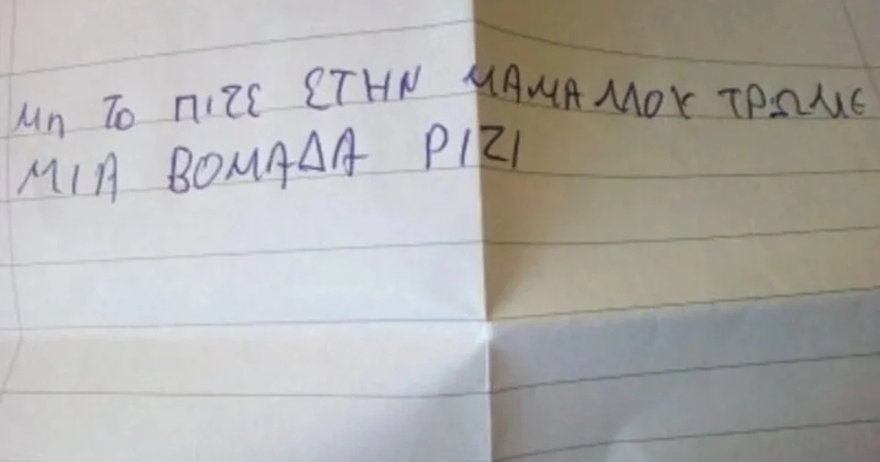 ΜΗ ΤΟ ΠΙΖΕ ΣΤΗΝ ΜΑΜΑ ΜΟΥ ΤΡΩΜΕ
ΜΙΑ ΒΟΜΑΔΑ ΡΙΖΙ